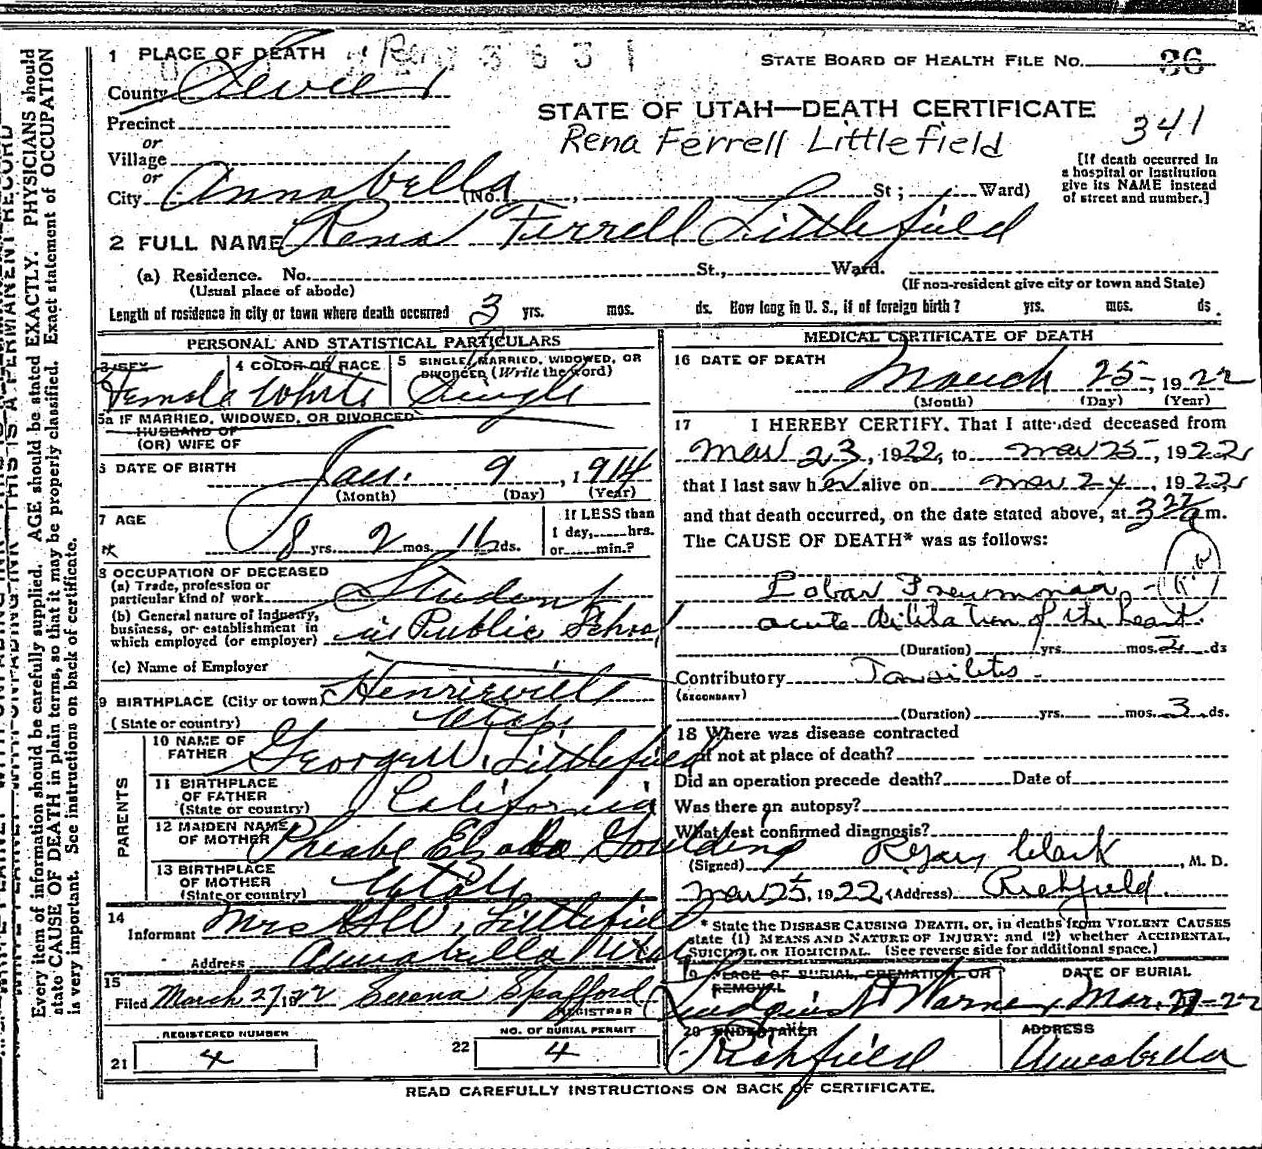 1 PLACE OF DEATH
Reg 3631
STATE BOARD OF HEALTH FILE No. 36
County Sevier
STATE OF UTAH—DEATH CERTIFICATE
341
Precinct
Rena Ferrell Littlefield
or
Village
or
City Annabella (No. , St ; Ward)
[If death occurred in
a hospital or institution
give its NAME instead
of street and number.]
2 FULL NAME Rena Ferrell Littlefield
(a) Residence. No. St., Ward.
(Usual place of abode) (If non-resident give city or town and State)
Length of residence in city or town where death occurred 3 yrs. mos. ds. How long in U. S., if of foreign birth? yrs. mos. ds.
PERSONAL AND STATISTICAL PARTICULARS
3 SEX Female
4 COLOR OR RACE White
5 SINGLE, MARRIED, WIDOWED, OR
DIVORCED (Write the word)
Single
5a IF MARRIED, WIDOWED, OR DIVORCED
HUSBAND OF
(OR) WIFE OF
6 DATE OF BIRTH Jan. 9, 1914
(Month) (Day) (Year)
7 AGE
8 yrs. 2 mos. 16 ds.
If LESS than
1 day, hrs.
or min.?
8 OCCUPATION OF DECEASED
(a) Trade, profession or
particular kind of work Student
(b) General nature of industry,
business, or establishment in
which employed (or employer) in Public School
(c) Name of Employer
9 BIRTHPLACE (City or town) Henrieville
(State or country) Utah
PARENTS
10 NAME OF
FATHER George W. Littlefield
11 BIRTHPLACE
OF FATHER
(State or country) California
12 MAIDEN NAME
OF MOTHER Pheabe Goulding
13 BIRTHPLACE
OF MOTHER
(State or country) Utah
14
Informant Mrs G W. Littlefield
Address Annabella Utah
15
Filed March 27 1922 Serena Spafford
REGISTRAR
REGISTERED NUMBER
21 4
NO. OF BURIAL PERMIT
22 4
MEDICAL CERTIFICATE OF DEATH
16 DATE OF DEATH March 25, 1922
(Month) (Day) (Year)
17 I HEREBY CERTIFY, That I attended deceased from
Mar 23, 1922, to Mar 25, 1922
that I last saw her alive on Mar 24, 1922
and that death occurred, on the date stated above, at 3 22 a m.
The CAUSE OF DEATH* was as follows:
Lobar Pneumonia -
acute dilitation of the heart.
(Duration) yrs. mos. 2 ds
Contributory Tonsilitis.
(SECONDARY)
(Duration) yrs. mos. 3 ds.
18 Where was disease contracted
if not at place of death?
Did an operation precede death? Date of
Was there an autopsy?
What test confirmed diagnosis?
(Signed) Clark, M. D.
Mar 25, 1922 (Address) Richfield
* State the DISEASE CAUSING DEATH, or, in deaths from VIOLENT CAUSES
state (1) MEANS AND NATURE OF INJURY; and (2) whether ACCIDENTAL,
SUICIDAL OR HOMICIDAL. (See reverse side for additional space.)
19 PLACE OF BURIAL, CREMATION, OR
REMOVAL
DATE OF BURIAL
Mar. 27-22
20 UNDERTAKER
Richfield
ADDRESS
Annabella
READ CAREFULLY INSTRUCTIONS ON BACK OF CERTIFICATE.
Every item of information should be carefully supplied. AGE should be stated EXACTLY. PHYSICIANS should
state CAUSE OF DEATH in plain terms, so that it may be properly classified. Exact statement of OCCUPATION
is very important. See instructions on back of certificate.